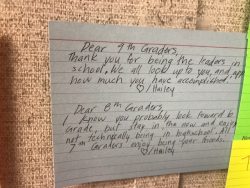 Dear 9th Graders,
thank you for being the leaders in
school, We all look up to you, and
how much you have accomplished
♡/Hailey
Dear 8th Graders,
I know you probably look foward to
grade, but stay in the now and enjoy
not technically being in highschool. All
7th Graders enjoy being your friends.
♡/Hailey